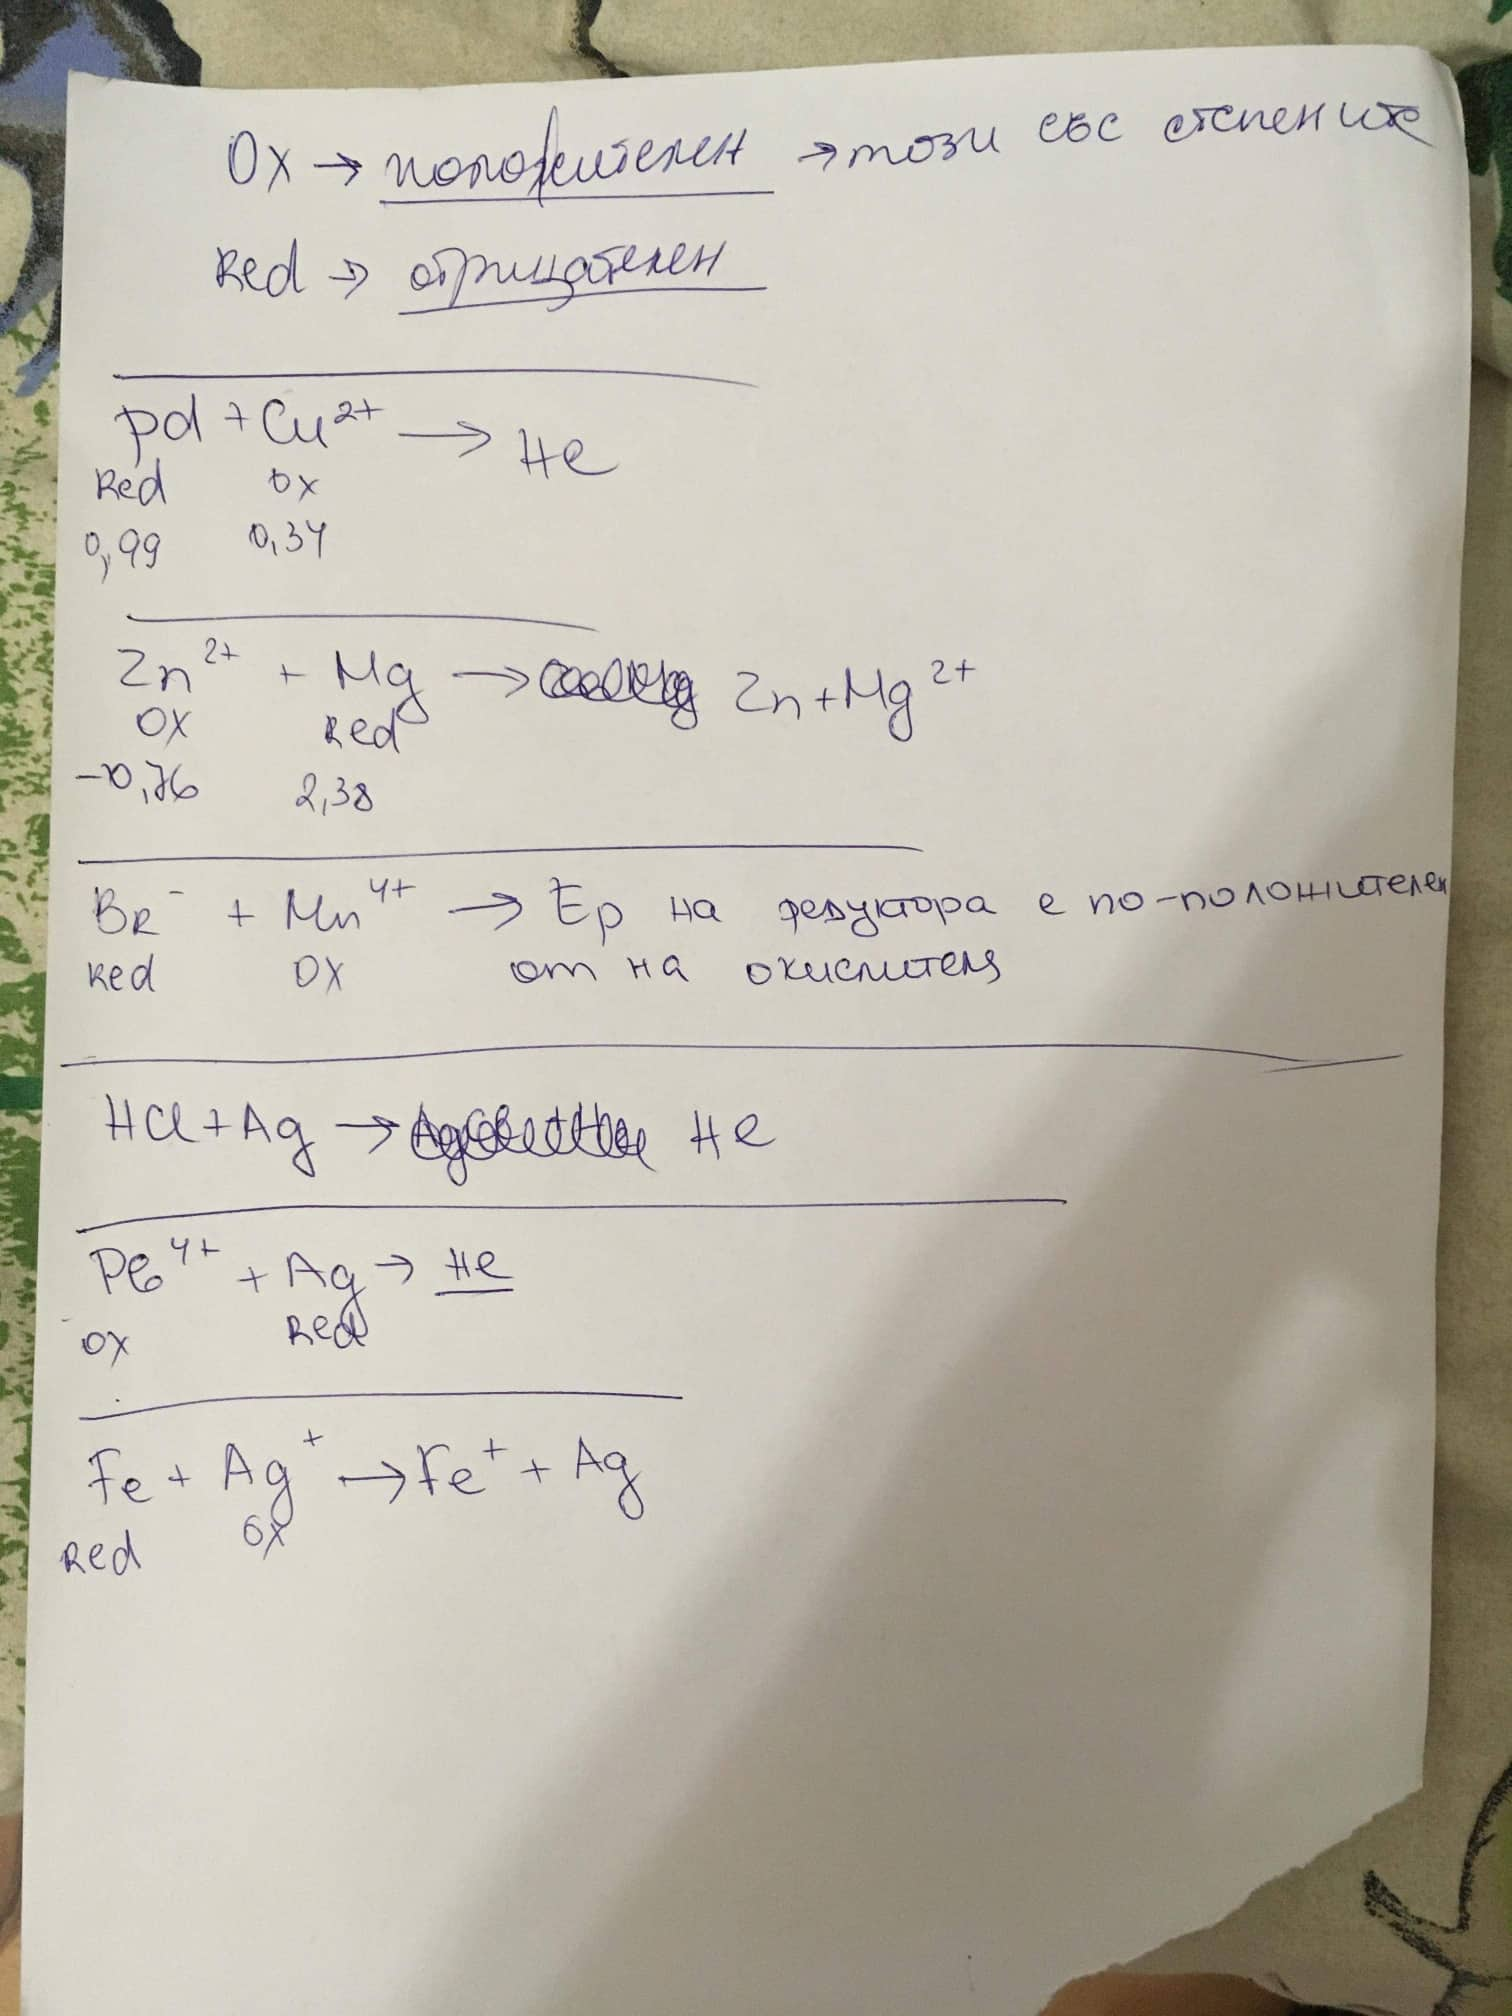 Ox → положителен → този със степените
Red → отрицателен
Pd + Cu²⁺ → Не
Red Ox
0,99 0,34
Zn²⁺ + Mg → Zn + Mg²⁺
Ox Red
-0,76 2,38
Br⁻ + Mn⁴⁺ → Ep на редуктора е по-положителен
Red Ox от на окислителя
HCl + Ag → Не
Pb⁴⁺ + Ag → Не
Ox Red
Fe + Ag⁺ → Fe⁺ + Ag
Red Ox